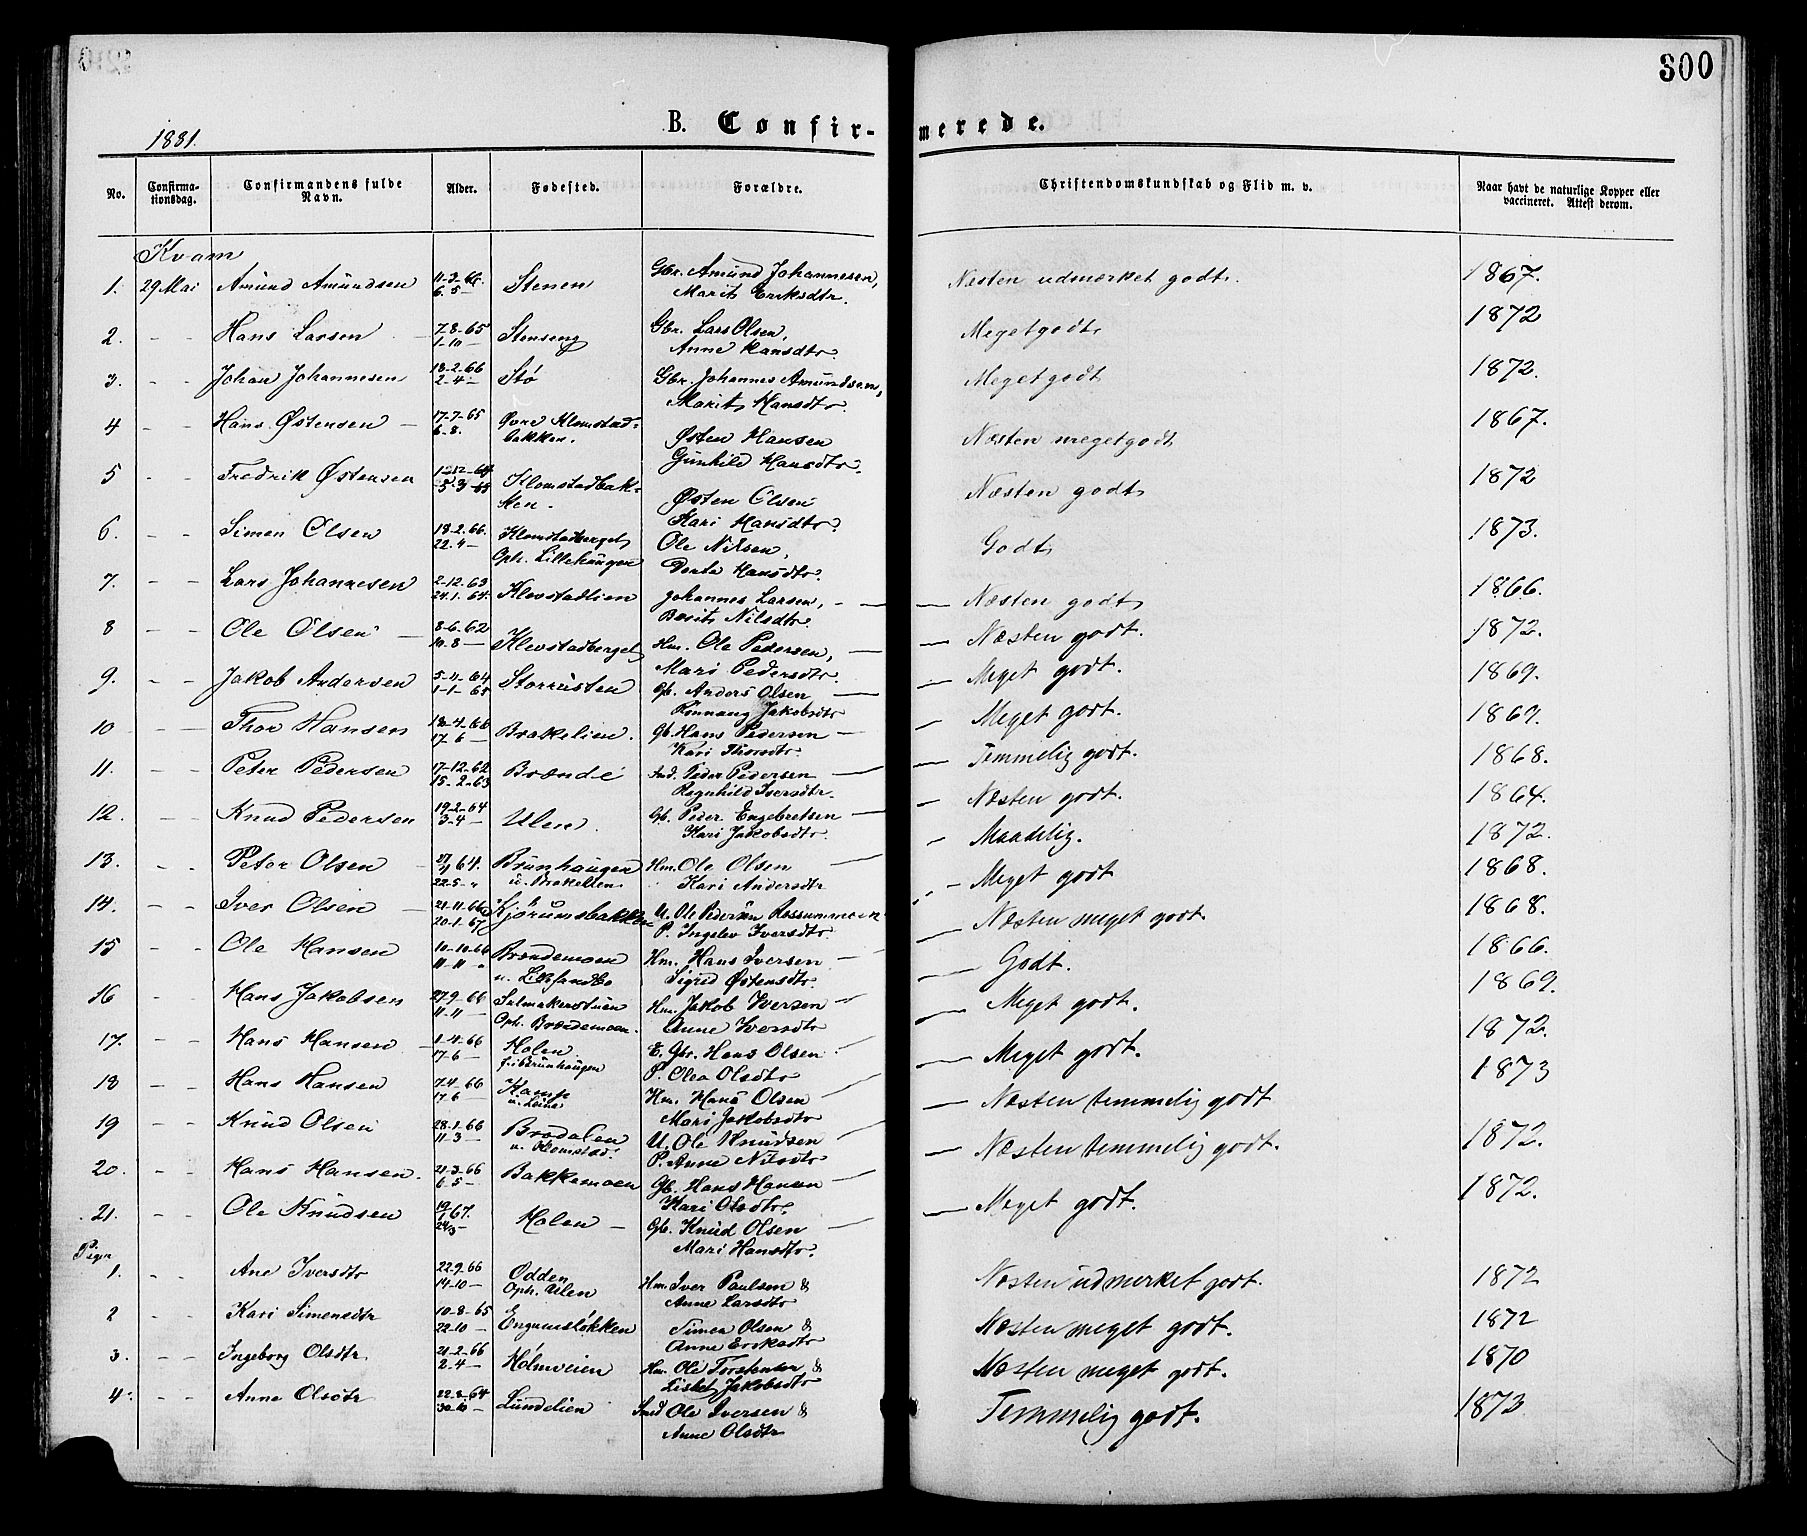 300
1881.
B. Confirmerede.
No. Confirmationsdag. Confirmandens fulde Navn. Alder. Fødested. Forældre. Christendomskundskab og Flid m. v. Naar havt de naturlige Kopper eller vaccineret. Attest derom.
Kvam
1. 29 Mai Amund Amundsen 11-3-66. 6-5- Stenen Gbr. Amund Johannesen, Marit Eriksdtr. Næsten udmærket godt. 1867.
2. - - Hans Larsen 7-8-65 1-10- Stenseng Gbr. Lars Olsen, Anne Hansdtr. Meget godt 1872
3. - - Johan Johannesen 18-2-66 2-4- Stø Gbr. Johannes Amundsen, Marit Hansdtr. Meget godt 1872.
4 - - Hans Østensen 17-7-65 6-8. Øvre Klomstadbakken. Østen Hansen Gunhild Hansdtr. Næsten meget godt 1867.
5 - - Fredrik Østensen 12-12-64 5-3-65 Klomstadbakken. Østen Olsen Kari Hansdtr. Næsten godt 1872
6. - - Simen Olsen 18-2-66. 22-4- Klomstadberget Oph. Lillehaugen Ole Nilsen, Dorte Hansdtr. Godt 1873.
7. - - Lars Johannesen 2-12-63 24-1-64. Klevstadlien Johannes Larsen, Berit Nilsdtr. Næsten godt 1866.
8 - - Ole Olsen 8-6-62 10-8- Klevstadberget Hm. Ole Pedersen, Mari Pedersdtr. Næsten godt. 1872.
9. - - Jakob Andersen 5-4-64 1-1-65 Storrusten Gb. Anders Olsen Rønnaug Jakobsdtr Meget godt. 1869.
10 - - Thor Hansen 18-4-66 17-6- Brakelien. Gb. Hans Pedersen Kari Thorsdtr. Meget godt. 1869.
11. - - Peter Pedersen 17-12-62 15-2-63 Brænde Ind. Peder Pedersen Ragnhild Iversdtr. Temmelig godt. 1868.
12. - - Knud Pedersen 19-2-64 3-4- Ulen. Gb. Peder Engebretsen Kari Jakobsdtr. Næsten godt. 1864.
13. - - Peter Olsen 64. 22-5-" Brunhaugen u. Brakelien. Hm. Ole Olsen Kari Andersdtr Maadelig. 1872.
14. - - Iver Olsen 21-11-66 20-1-67 Kjørumsbakken U. Ole Pedersen Rossummoen P. Ingelev Iversdtr. Meget godt 1868.
15 - - Ole Hansen 10-10-66 11-11-" Brændemoen u. Lillesandbo Hm. Hans Iversen Sigrid Østensdtr. Næsten meget godt. 1868.
16 - - Hans Jakobsen 27-9-66 11-11- Salmakerstuen Oph. Brændemoen. Hm. Jakob Iversen Anne Iversdtr Godt. 1866.
17. - - Hans Hansen 1-4-66 17-6- Holen. E. Gbr. Hans Olsen P. Olea Olsdtr Meget godt. 1869.
18 - - Hans Hansen 7-4-66 17-6- Kamp Hm. Hans Olsen Mari Jakobsdtr Meget godt. 1872.
19 - - Knud Olsen 28-1-66 11-3- Brodalen u. Klomstad. U. Ole Knudsen P. Anne Nilsdtr Næsten temmelig godt 1873
20. - - Hans Hansen. 21-3-66 6-5- Bakkemoen Gb. Hans Hansen Kari Olsdtr. Næsten temmelig godt. 1872.
21. - - Ole Knudsen 19/1 67. Holen Gb. Knud Olsen Mari Hansdtr. Meget godt. 1872.
Piger
1. - - Ane Iversdtr 22-9-66 14-10- Odden Oph. Ulen Hm. Iver Paulsen & Anne Larsdtr Næsten udmerket godt. 1872
2 - - Kari Simensdtr 10-8-65 22-10- Engumsløkken Simen Olsen & Anne Eriksdtr Næsten meget godt. 1872
3. - - Ingeborg Olsdtr 21-2-66 2-4- Holmveien Hm. Ole Torstensen & Lisbet Jakobsdtr Næsten meget godt. 1870
4. - - Anne Olsdtr 22-8-64 30-10- Lundelien Ole Iversen & Anne Olsdtr Temmelig godt. 1873